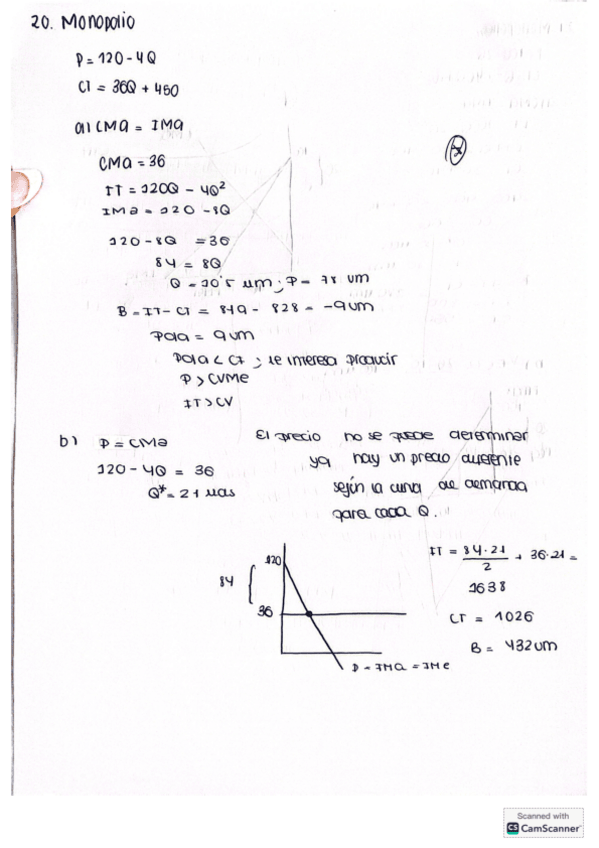 20. Monopolio
P = 120 - 4Q
CT = 36Q + 450
a) CMa = IMa
CMa = 36
IT = 120Q - 4Q²
IMa = 120 - 8Q
120 - 8Q = 36
84 = 8Q
Q = 10'5 um ; P = 78 um
B = IT - CT = 819 - 828 = -9um
Pdia = 9um
Pdia < CF ; le interesa producir
P > CVMe
IT > CV
b) P = CMa
120 - 4Q = 36
Q* = 21 uds
El precio no se puede determinar
ya hay un precio diferente
según la curva de demanda
para cada Q.
120
84
36
D = IMa = IMe
IT = 84·21 / 2 + 36·21 =
1638
CT = 1026
B = 432um
Scanned with
CS CamScanner